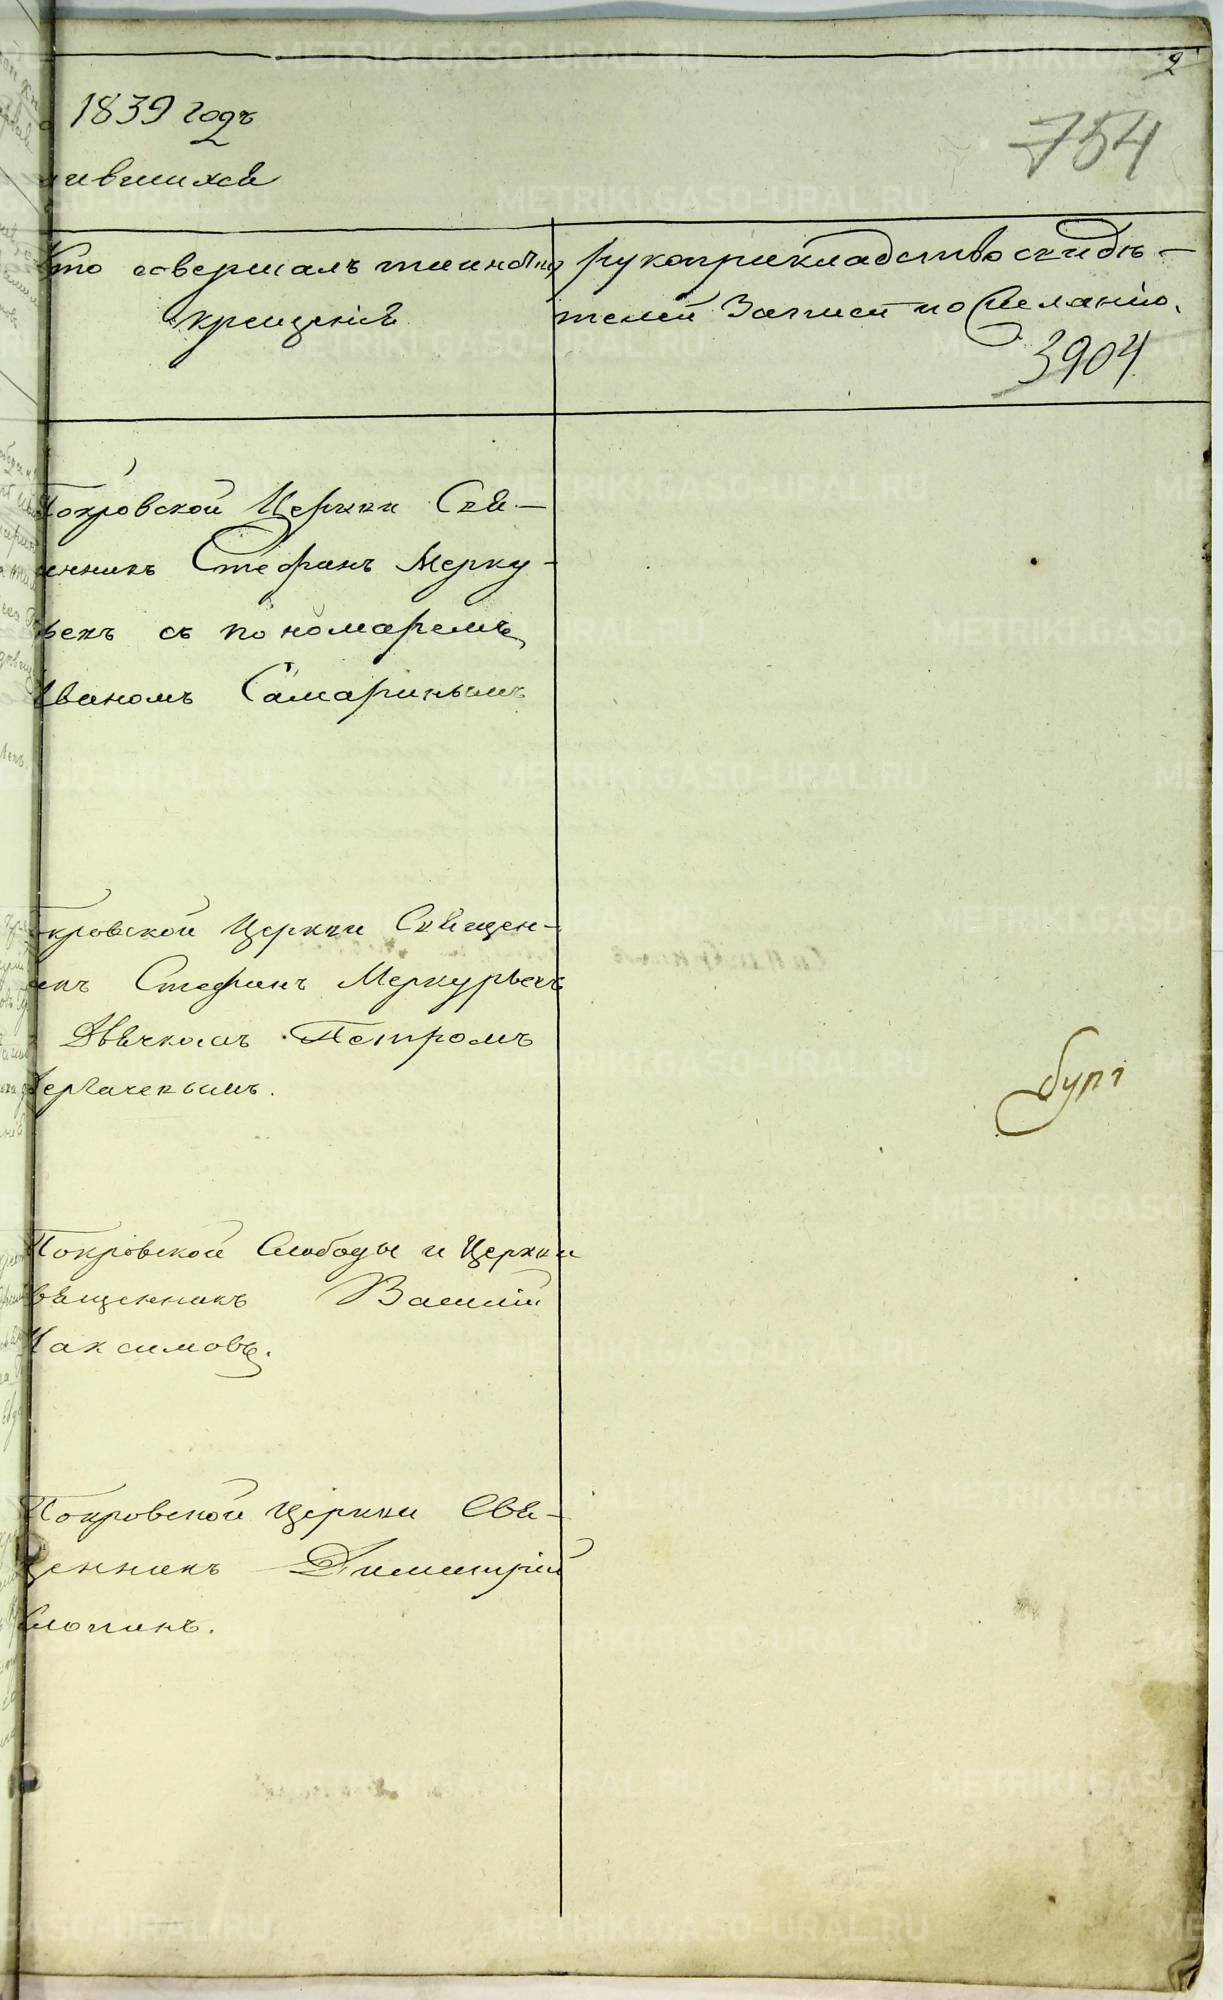 2
1839 годъ
754
лившихся
Кто совершалъ таинство
крещенія
рукоприкладство свидѣ-
телей Записи по Желанію.
3904
Покровской Церкви Свя-
щенникъ Стефанъ Мерку-
рьевъ съ пономаремъ
Иваномъ Самаринымъ
Покровской Церкви Священ-
никъ Стефанъ Меркурьевъ
Дьячкомъ Петромъ
Покровской Слободы и Церкви
Священникъ Василій
Максимовъ.
Покровской Церкви Свя-
щенникъ Димитрій